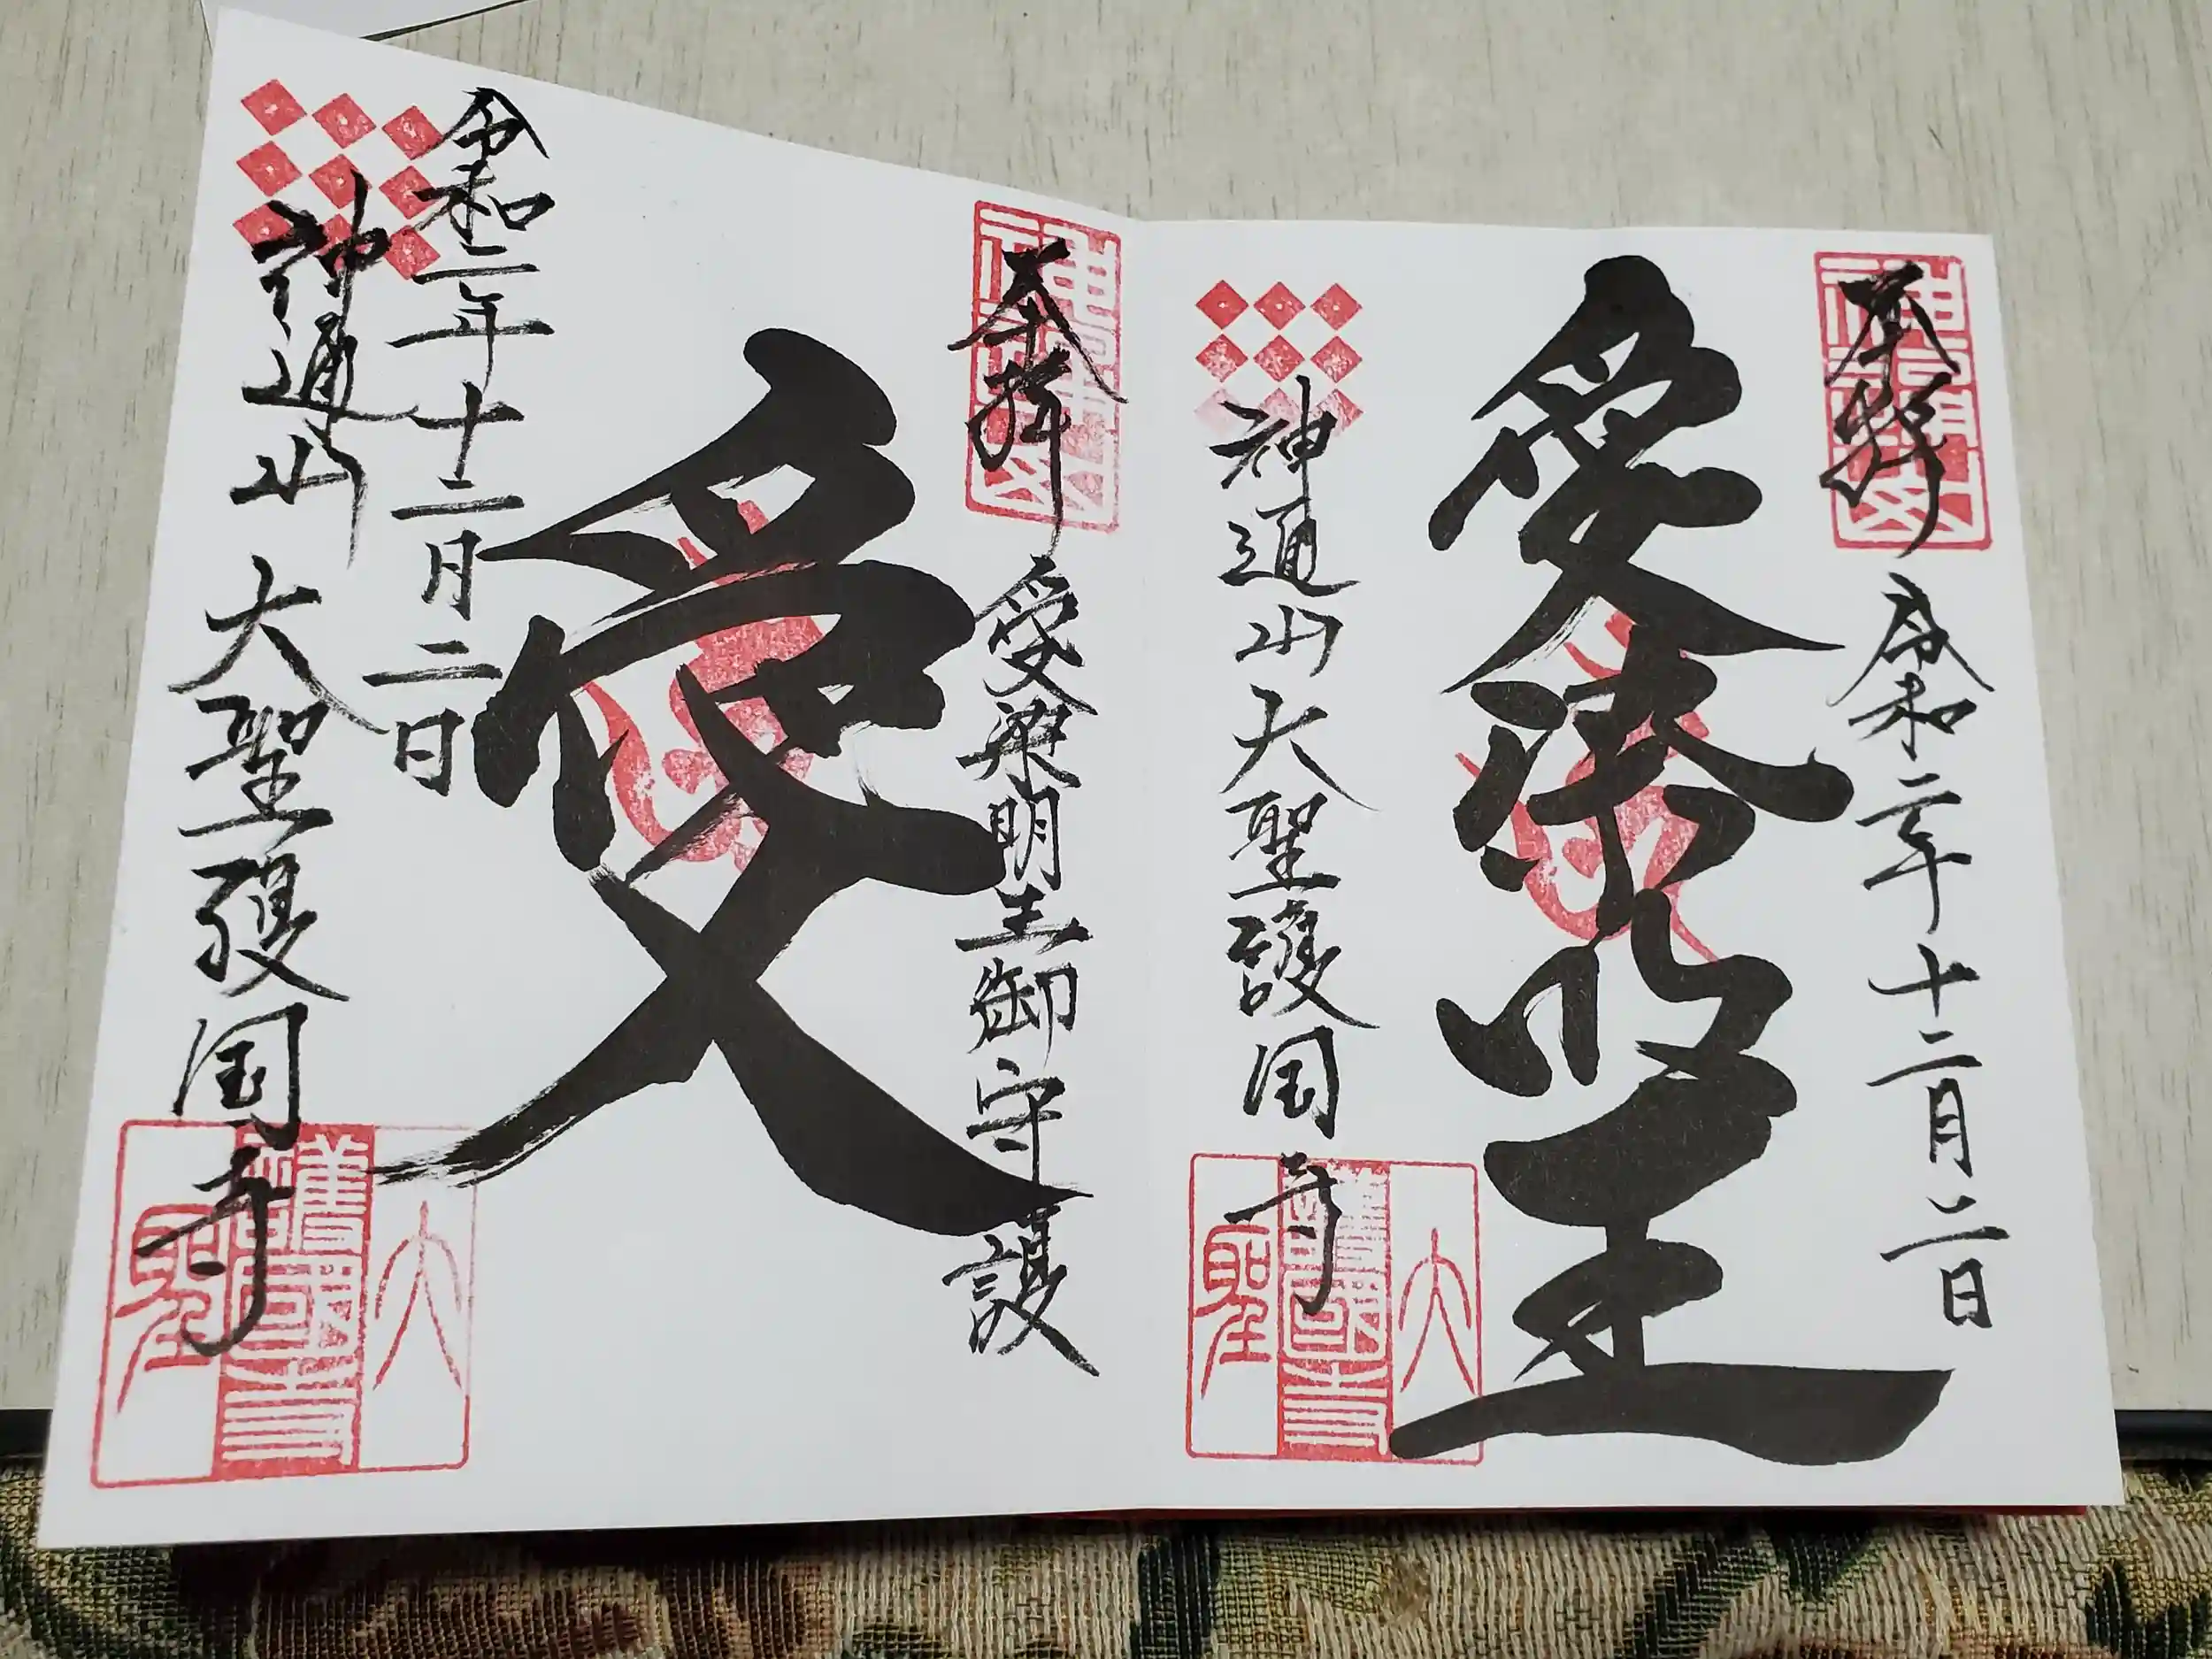 奉拝
令和二年十二月二日
愛染明王
神通山大聖護国寺
大聖護國寺
奉拝
愛染明王御守護
愛
令和二年十二月二日
神通山 大聖護国寺
大聖護國寺